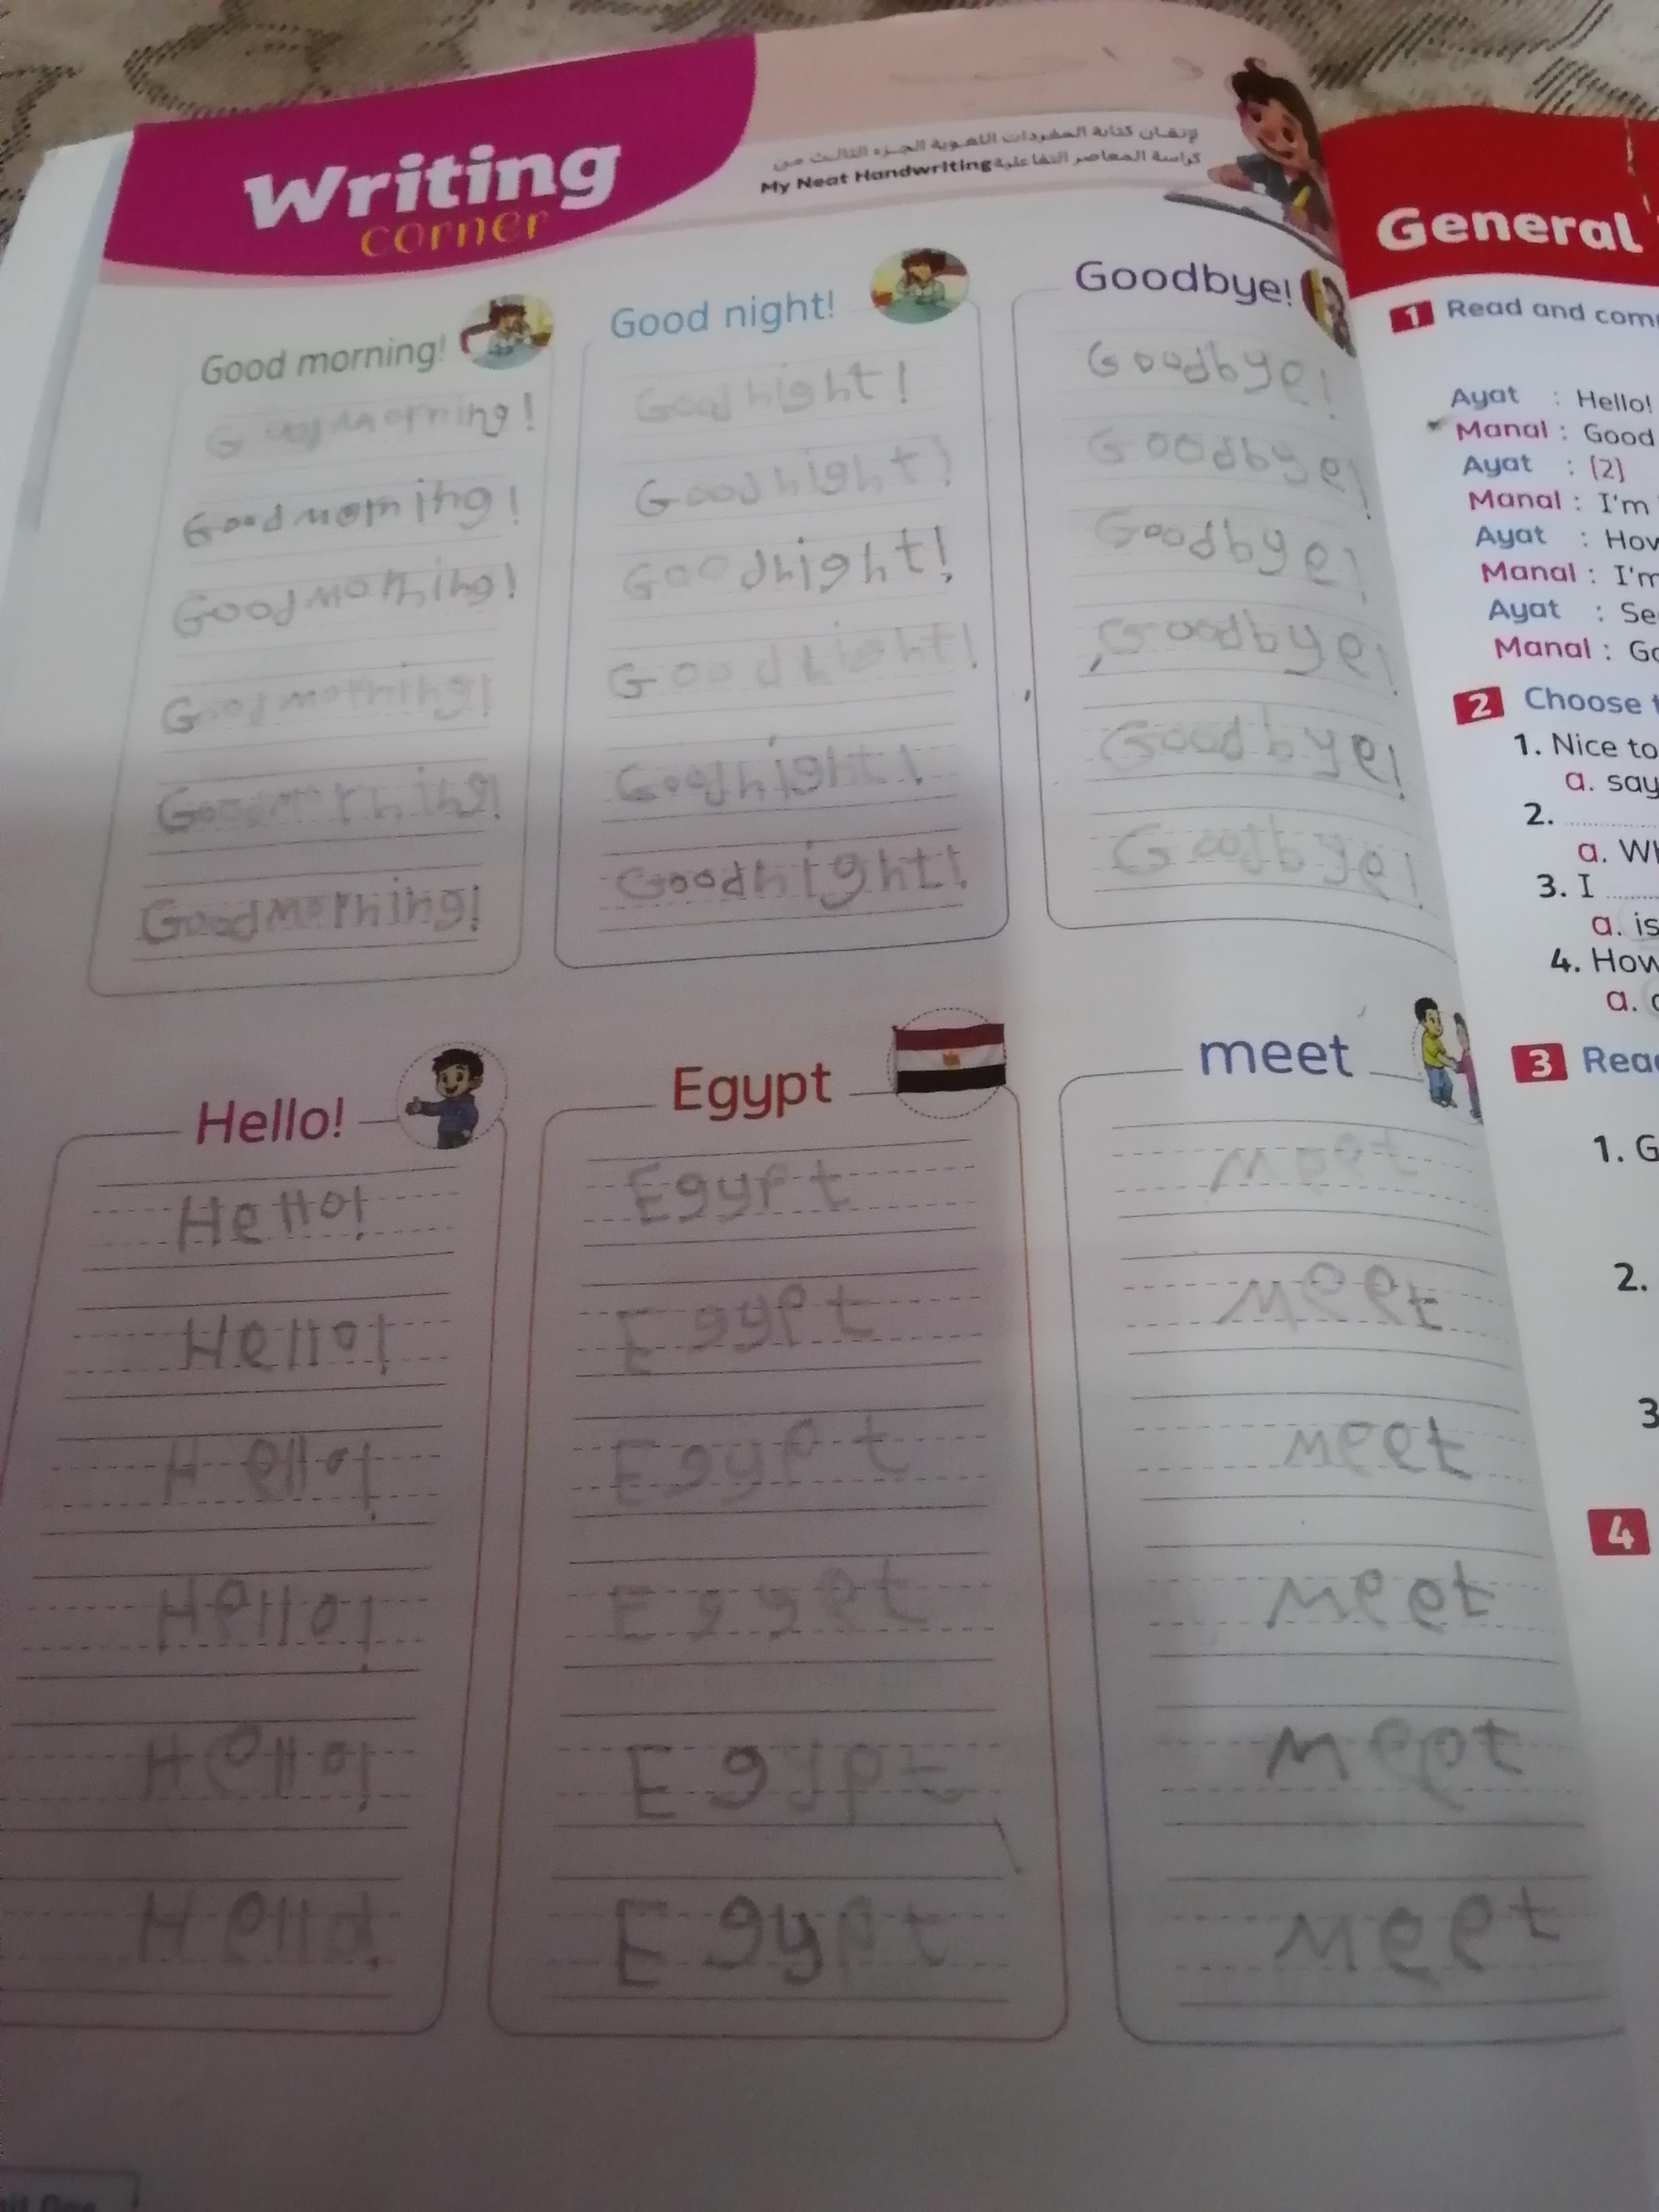 Writing
corner
لإتقان كتابة المفردات اللغوية الجزء الثالث من
كراسة المعاصر التفاعلية My Neat Handwriting
Good morning!
Good morning!
Good morning!
Good morning!
Good morning!
Good morning!
Good morning!
Good night!
Good night!
Good night!
Good night!
Good night!
Good night!
Good night!
Goodbye!
Goodbye!
Goodbye!
Goodbye!
Goodbye!
Goodbye!
Goodbye!
Hello!
Hello!
Hello!
Hello!
Hello!
Hello!
Hello!
Egypt
Egypt
Egypt
Egypt
Egypt
Egypt
meet
meet
meet
meet
meet
meet
meet
General
1 Read and com
Ayat : Hello!
Manal : Good
Ayat : (2)
Manal : I'm
Ayat : How
Manal : I'm
Ayat : Se
Manal : Go
2 Choose t
1. Nice to
a. say
2.
a. Wh
3. I
a. is
4. How
a.
3 Read
1. G
2.
3
4